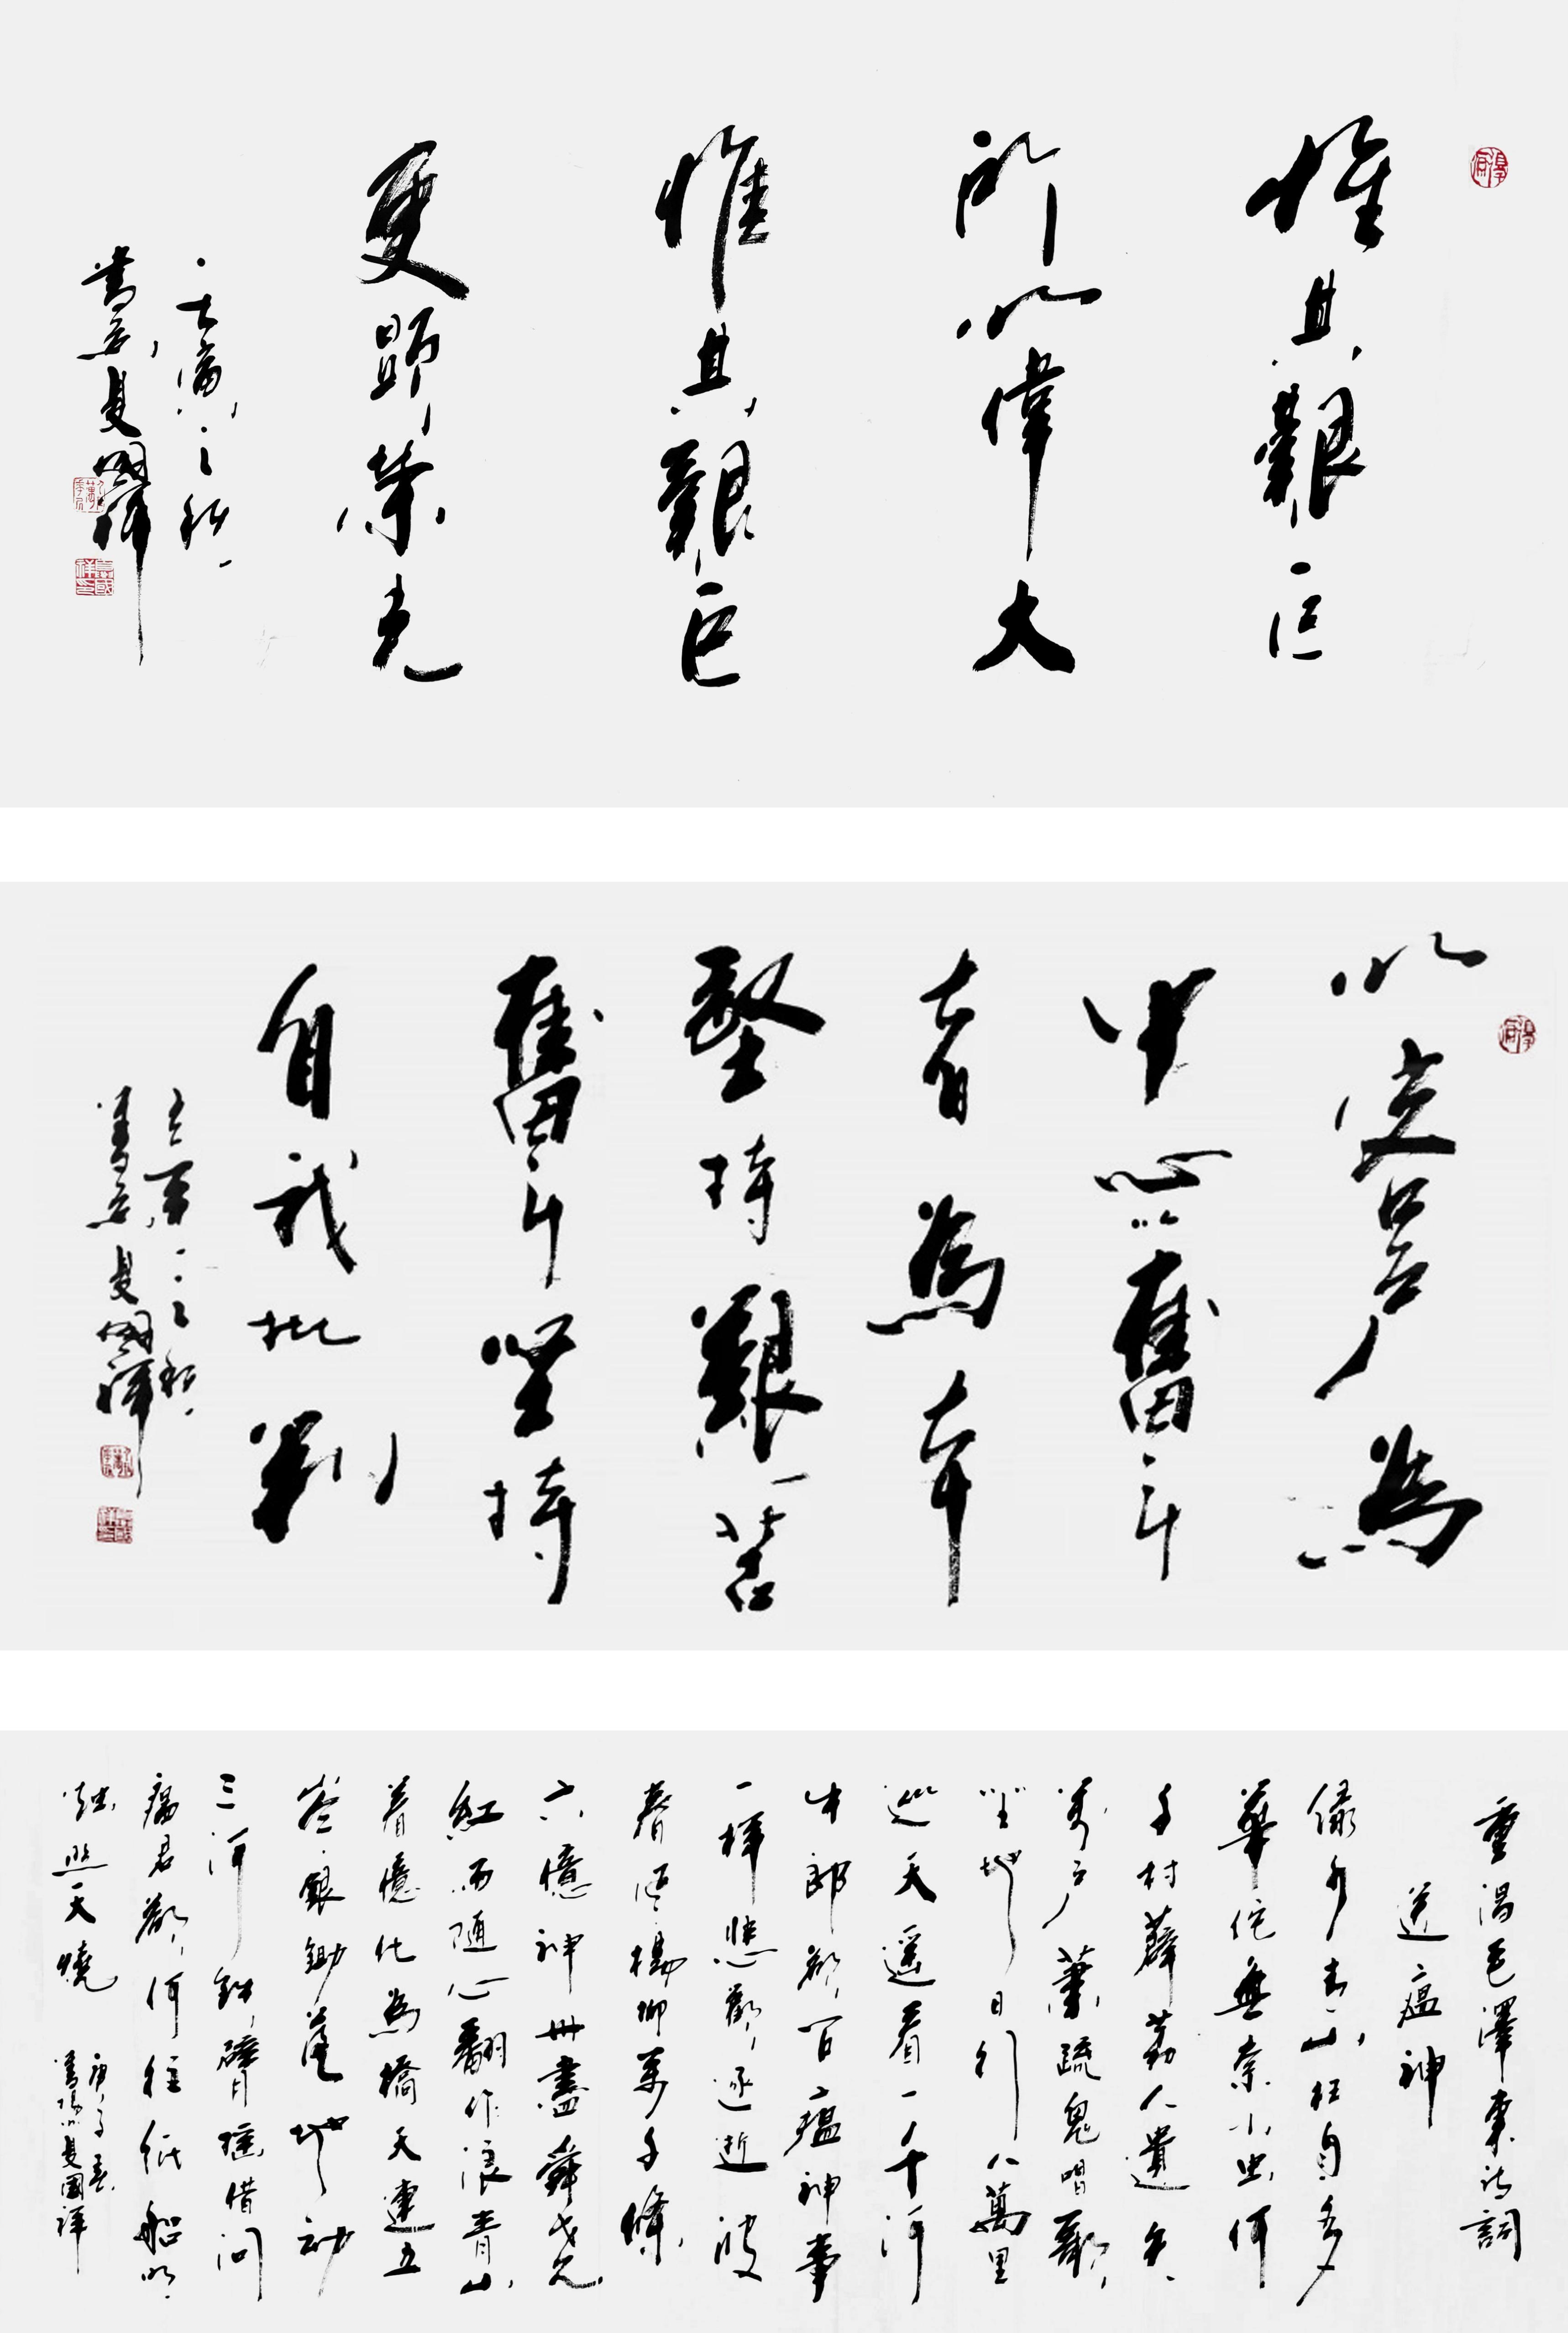 惟其艱巨
所以偉大
惟其艱巨
更顯榮光
之秋
夏國祥
以客户為
中心以奮斗
者為本
堅持艱苦
奮斗堅持
自我批判
之秋
夏國祥
重温毛澤東詩詞
送瘟神
緑水青山枉自多
華佗無奈小虫何
千村薜荔人遺矢
萬户蕭疏鬼唱歌
坐地日行八萬里
巡天遥看一千河
牛郎欲问瘟神事
一樣悲歡逐逝波
春風楊柳萬千條
六憶神州盡舜堯
紅雨随心翻作浪青山
着憶化為橋天連五
嶺銀鋤落地动
三河鉄臂摇借问
瘟君欲何往紙船明
燭照天燒
庚子春
夏國祥